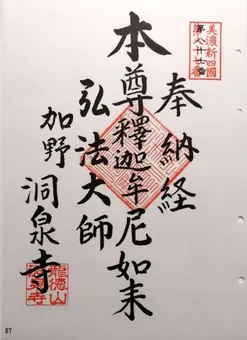 美濃新四國
第八十七番
奉納経
本尊釋迦牟尼如来
弘法大師
加野
洞泉寺
龍徳山
洞泉寺
87